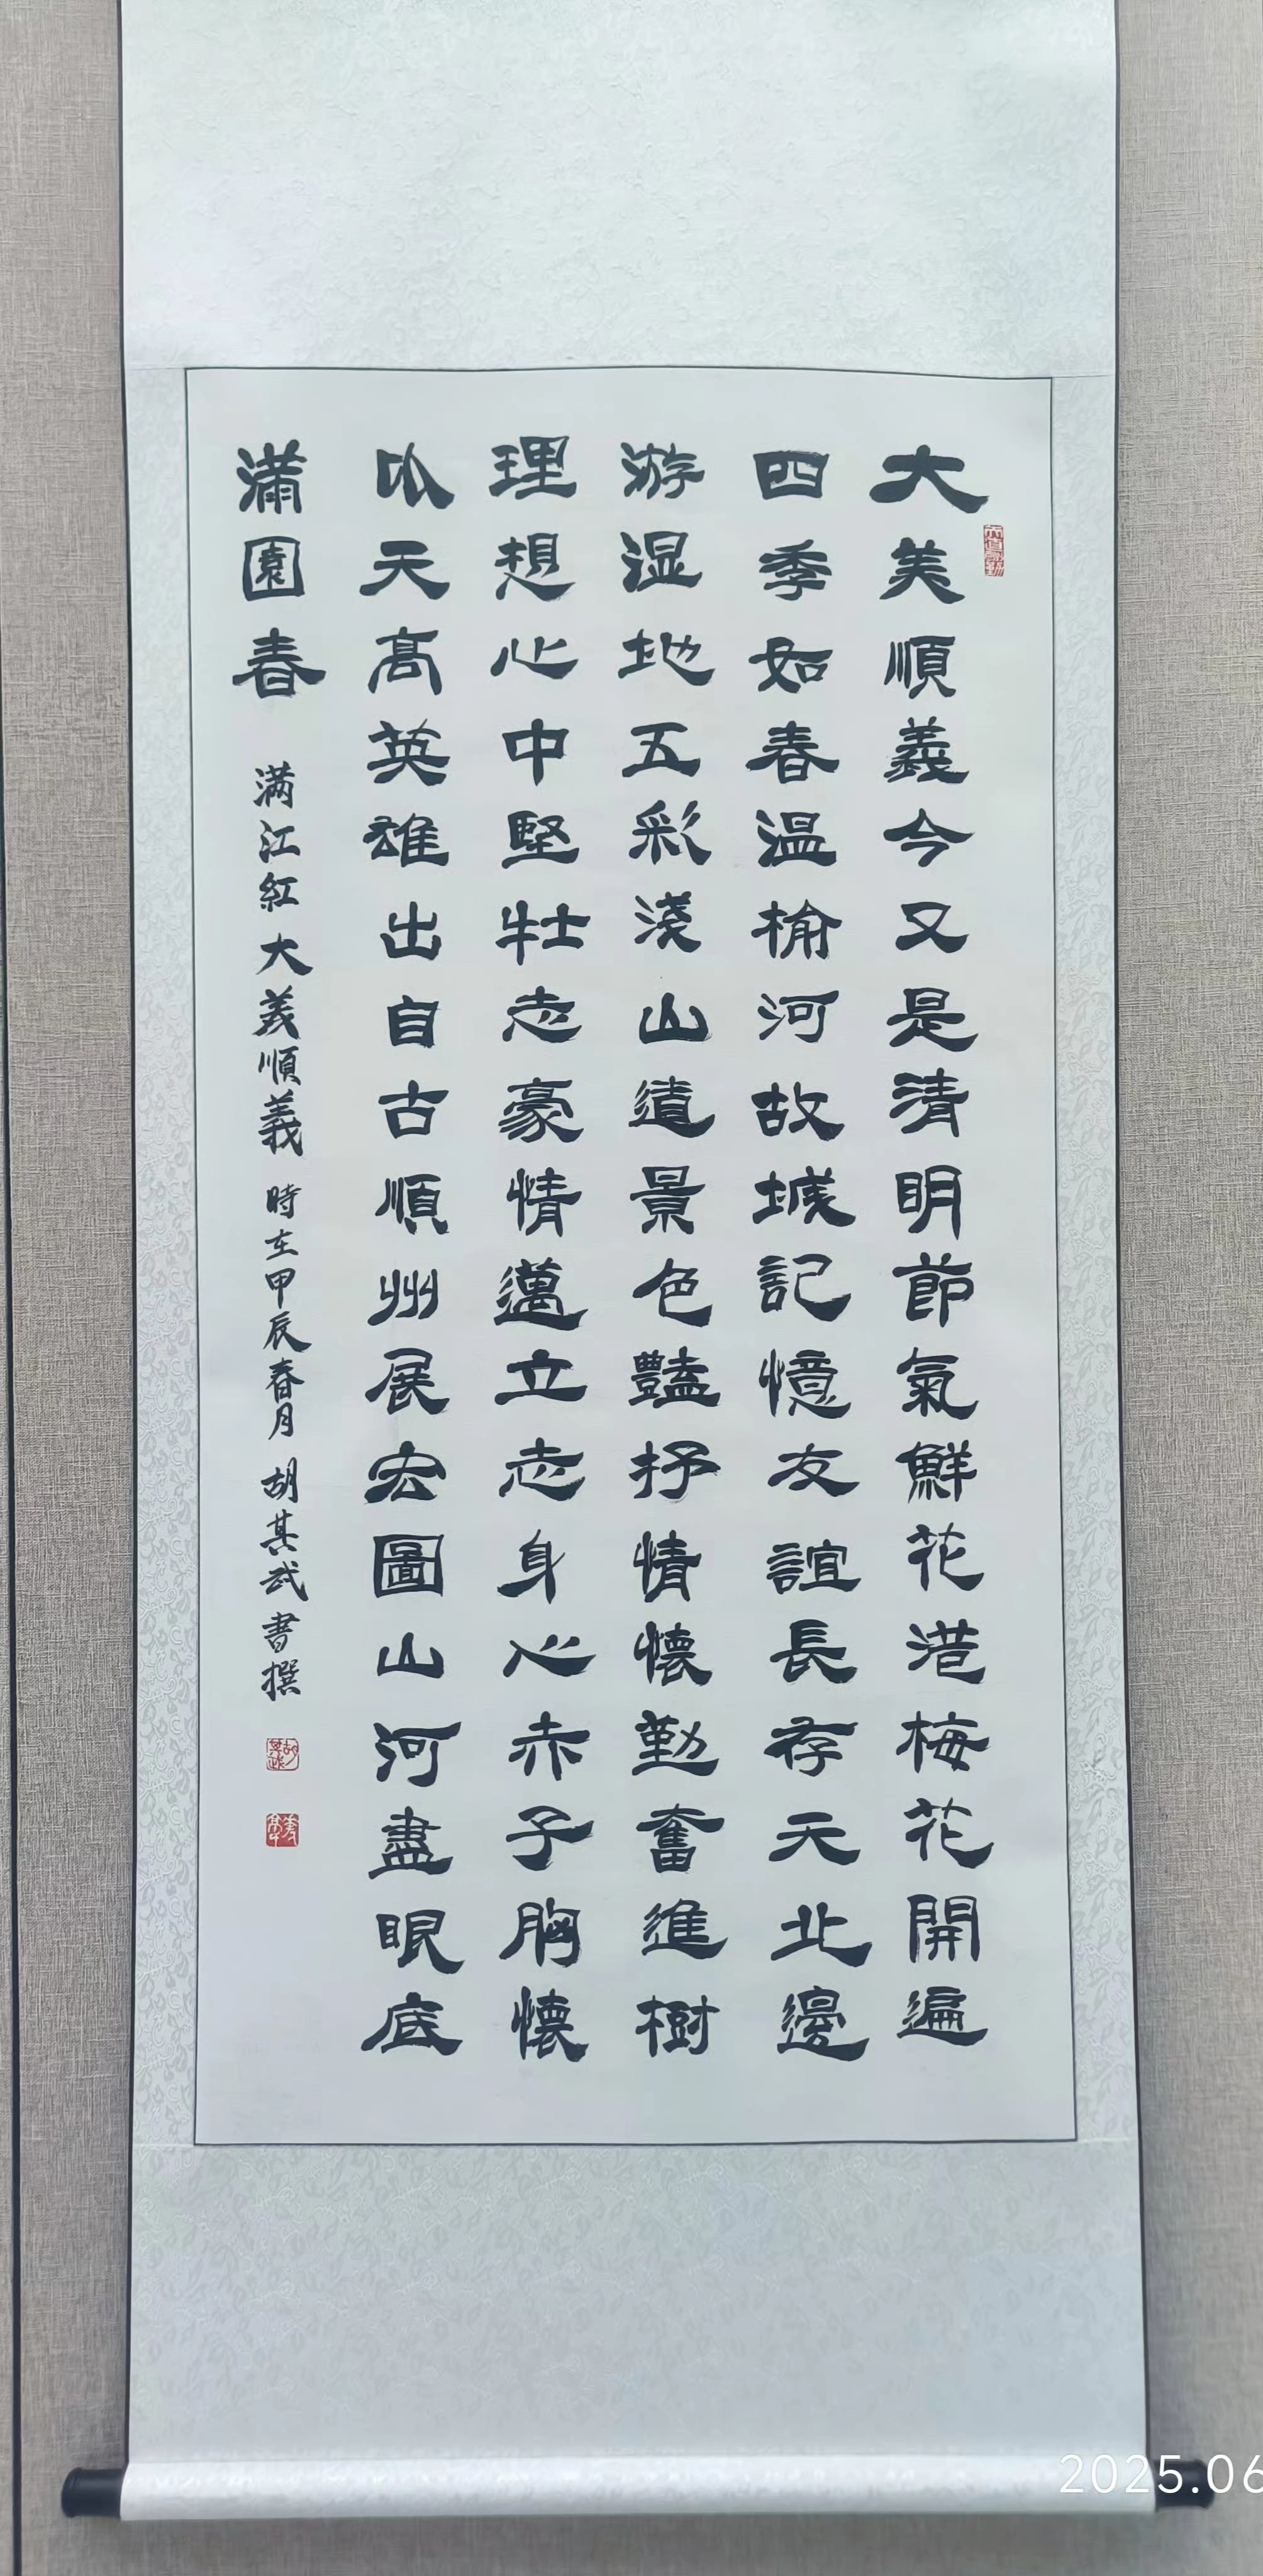 大美順義今又是清明節氣鮮花港梅花開遍
四季如春温榆河故城記憶友誼長存天北邊
游湿地五彩淺山遺景色豔抒情懷勤奮進樹
理想心中堅壮志豪情邁立志身心赤子胸懷
似天高英雄出自古順州展宏圖山河盡眼底
滿園春
满江紅 大美順義 時在甲辰春月 胡其武書撰
2025.06